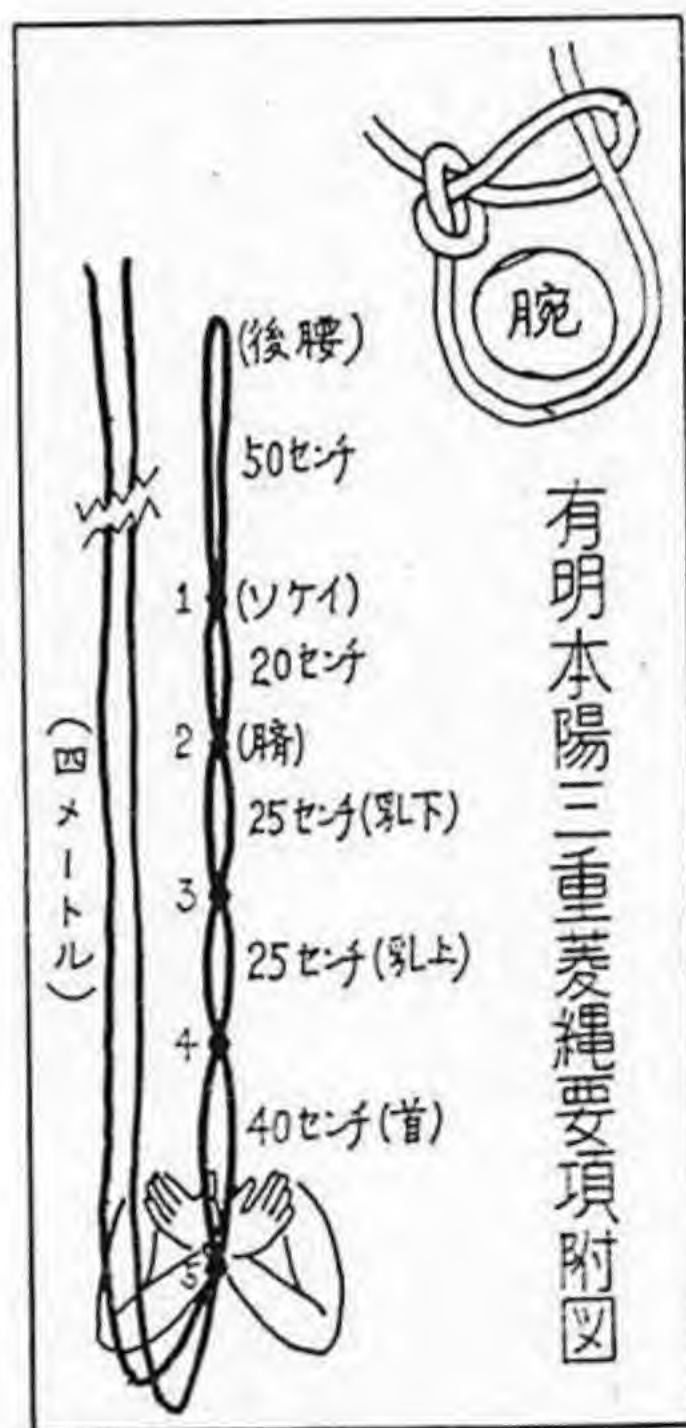 有明本陽三重菱縄要項附図
腕
(後腰)
50センチ
1 (ソケイ)
20センチ
2 (臍)
25センチ(乳下)
3
25センチ(乳上)
4
40センチ(首)
5
(四メートル)